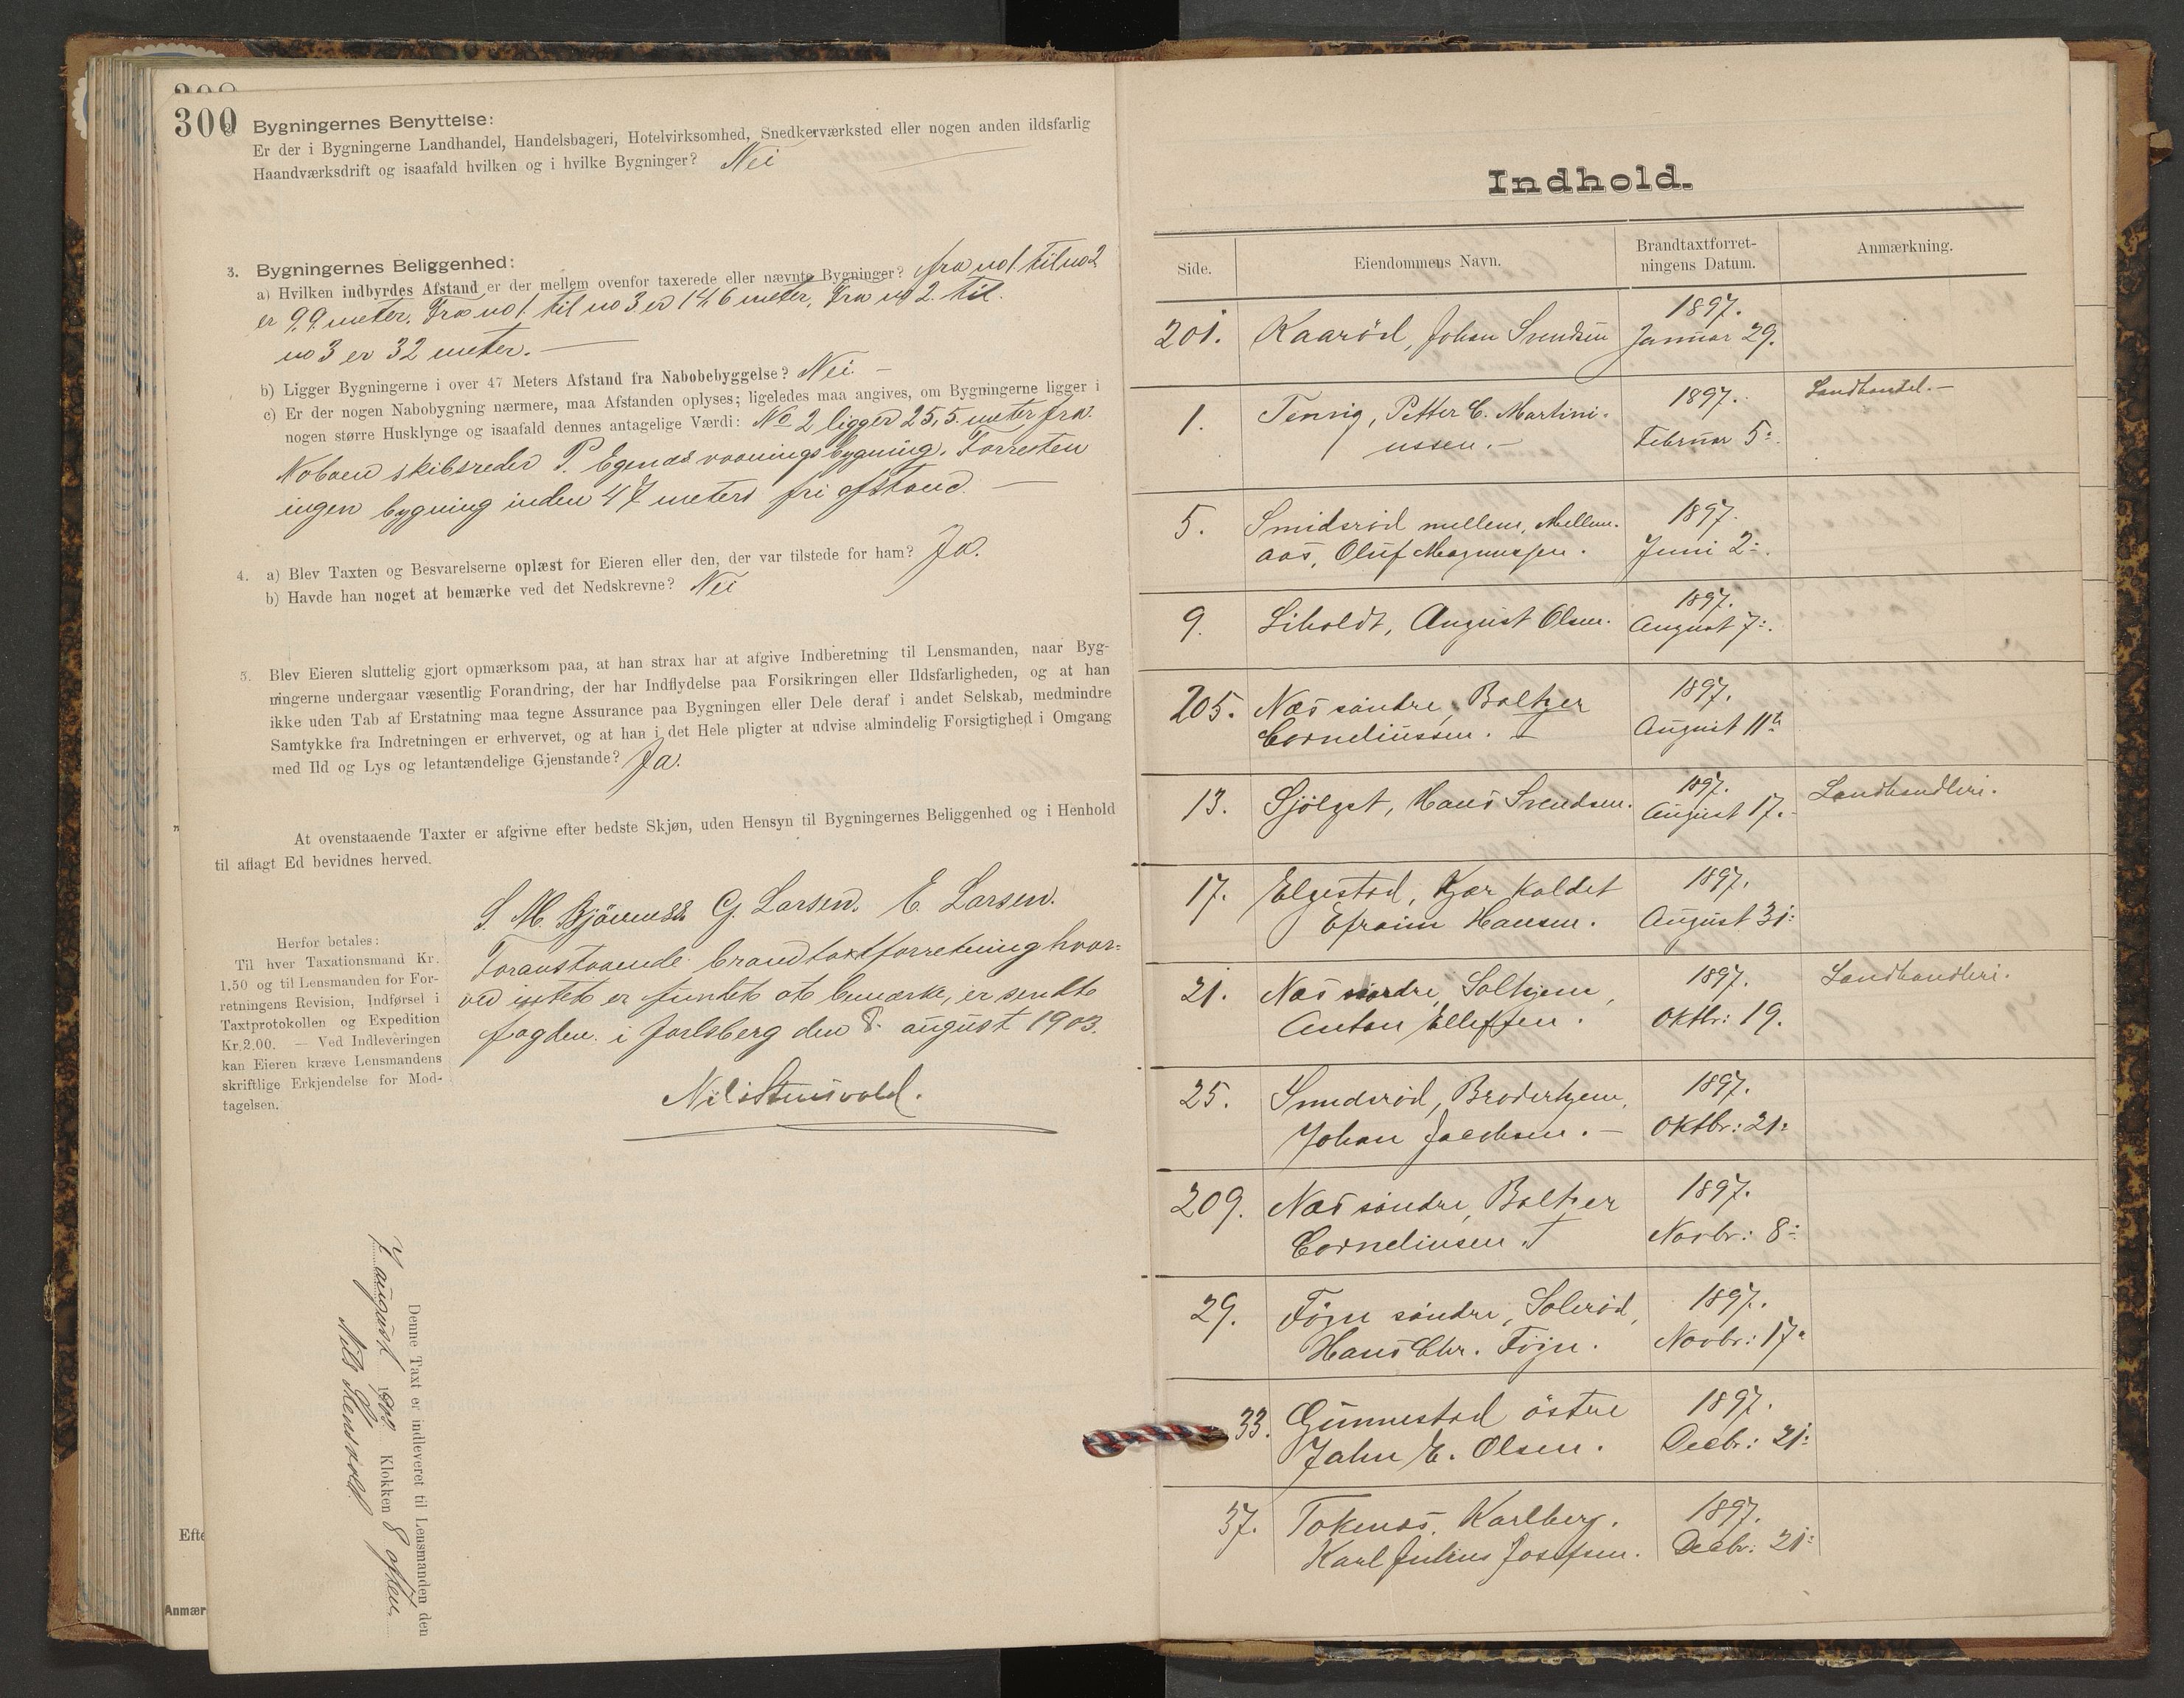 300
Bygningernes Benyttelse:
Er der i Bygningerne Landhandel, Handelsbageri, Hotelvirksomhed, Snedkerværksted eller nogen anden ildsfarlig
Haandværksdrift og isaafald hvilken og i hvilke Bygninger? Nei
3. Bygningernes Beliggenhed:
a) Hvilken indbyrdes Afstand er der mellem ovenfor taxerede eller nævnte Bygninger? fra no 1 til no 2
er 9,9 meter. Fra no 1 til no 3 er 14,6 meter, Fra no 2 til
no 3 er 32 meter. —
b) Ligger Bygningerne i over 47 Meters Afstand fra Nabobebyggelse? Nei. —
c) Er der nogen Nabobygning nærmere, maa Afstanden oplyses; ligeledes maa angives, om Bygningerne ligger i
nogen større Husklynge og isaafald dennes antagelige Værdi: No 2 ligger 25,5 meter fra
Naboen skibsreder P. Egenæs vaaningsbygning. Forresten
ingen bygning inden 47 meters fri afstand. —
4. a) Blev Taxten og Besvarelserne oplæst for Eieren eller den, der var tilstede for ham? Ja.
b) Havde han noget at bemærke ved det Nedskrevne? Nei
5. Blev Eieren sluttelig gjort opmærksom paa, at han strax har at afgive Indberetning til Lensmanden, naar Byg-
ningerne undergaar væsentlig Forandring, der har Indflydelse paa Forsikringen eller Ildsfarligheden, og at han
ikke uden Tab af Erstatning maa tegne Assurance paa Bygningen eller Dele deraf i andet Selskab, medmindre
Samtykke fra Indretningen er erhvervet, og at han i det Hele pligter at udvise almindelig Forsigtighed i Omgang
med Ild og Lys og letantændelige Gjenstande? Ja.
At ovenstaaende Taxter er afgivne efter bedste Skjøn, uden Hensyn til Bygningernes Beliggenhed og i Henhold
til aflagt Ed bevidnes herved.
S. M. G. Larsen. E. Larsen.
Foranstaaende brandtaxtforretning hvor-
ved intet er fundet at bemærke, er sendt
fogden i Jarlsberg den 8. august 1903.
Nils Stensvold.
Herfor betales:
Til hver Taxationsmand Kr.
1.50 og til Lensmanden for For-
retningens Revision, Indførsel i
Taxtprotokollen og Expedition
Kr. 2.00. — Ved Indleveringen
kan Eieren kræve Lensmandens
skriftlige Erkjendelse for Mod-
tagelsen.
Denne Taxt er indleveret til Lensmanden den
7 august 1903 Klokken 8 aften.
Nils Stensvold
Efte
Anmær
Indhold.
Side. Eiendommens Navn. Brandtaxtforret-
ningens Datum. Anmærkning.
201. Kaarød, Johan Svendsen 1897.
Januar 29.
1. Tenvig, Petter C. Martini-
ussen. — 1897.
Februar 5. Landhandel. —
5. Smidsrød mellem, Mellem-
aas, Oluf Magnussen. 1897.
Juni 2.
9. Liholdt, August Olsen. 1897.
August 7.
205. Næs søndre, Baltzer
Corneliussen. 1897.
August 11
13. Sjølyst, Hans Svendsen. 1897.
August 17. Landhandleri.
17. Elgestad, Kjær kaldet
Efraim Hansen. 1897.
August 31.
21. Næs nordre, Solhjem,
Anton Ellefsen. 1897.
Oktbr: 19. Landhandleri.
25. Smidsrød, Broderhjem,
Johan Jacobsen. — 1897.
Oktbr: 21.
209. Næs søndre, Baltzer
Corneliusen 1897.
Novbr: 8.
29. Føgn søndre, Solerød,
Hans Chr. Føgn. 1897.
Novbr: 17.
33. Gunnestad østre
Jahn E. Olsen. 1897.
Decbr: 21.
37. Tokenæs, Karlberg.
Karl Julius Josefsen. 1897.
Decbr: 21.